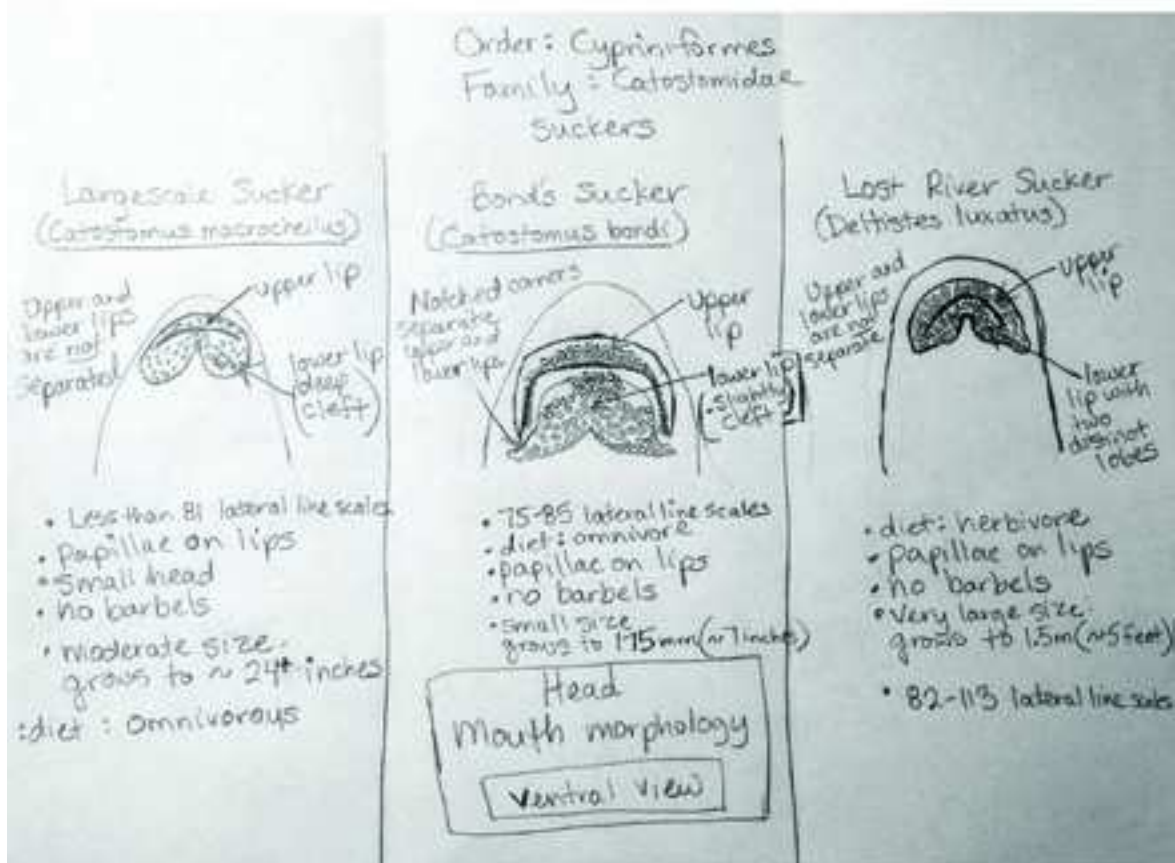 Order: Cypriniformes
Family: Catostomidae
suckers
Largescale Sucker
(Catostomus macrocheilus)
Upper and
lower lips
are not
separated
upper lip
lower lip
deep
cleft
• Less than 81 lateral line scales
• Papillae on lips
• Small head
• no barbels
• moderate size:
grows to ~ 24+ inches
:diet : omnivorous
Bond's Sucker
(Catostomus bondi)
Notched corners
separate
upper and
lower lips
upper
lip
lower lip
• slightly
cleft
• 75-85 lateral line scales
• diet: omnivore
• papillae on lips
• no barbels
• small size
grows to 175mm (~7 inches)
Head
Mouth morphology
ventral view
Lost River Sucker
(Deltistes luxatus)
Upper and
lower lips
are not
separate
upper
lip
lower
lip with
two
distinct
lobes
• diet: herbivore
• papillae on lips
• no barbels
• very large size:
grows to 1.5m (~5 feet)
• 82-113 lateral line scales